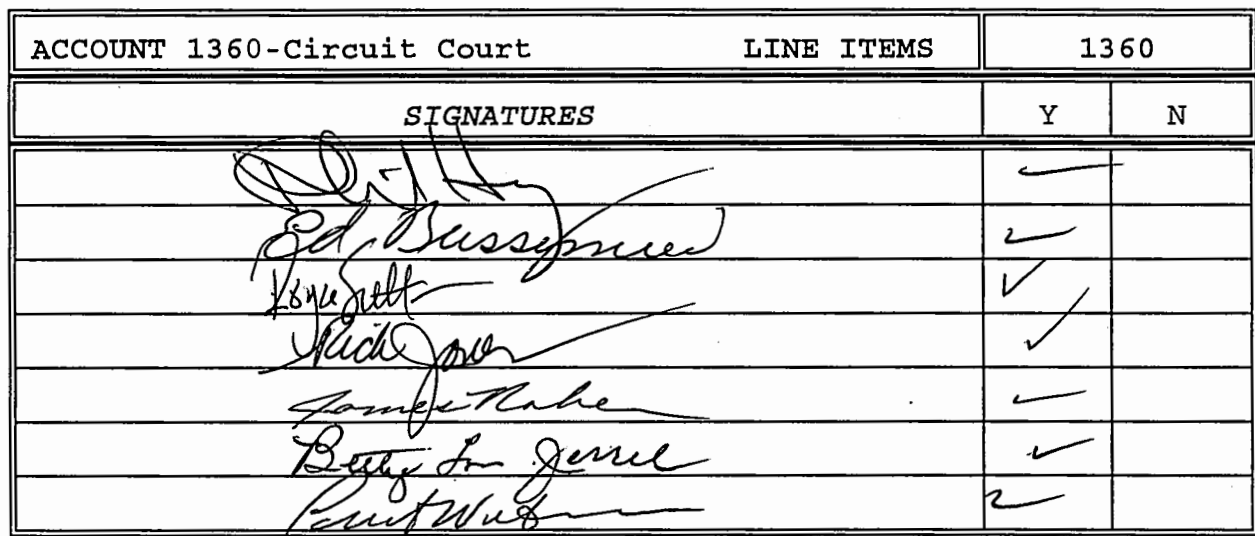 ACCOUNT 1360-Circuit Court LINE ITEMS 1360
SIGNATURES Y N
✓
Ed Bassemier ✓
Royce Sutton ✓
✓
James Raben ✓
Betty Lou Jerrel ✓
Curt Wortman ✓